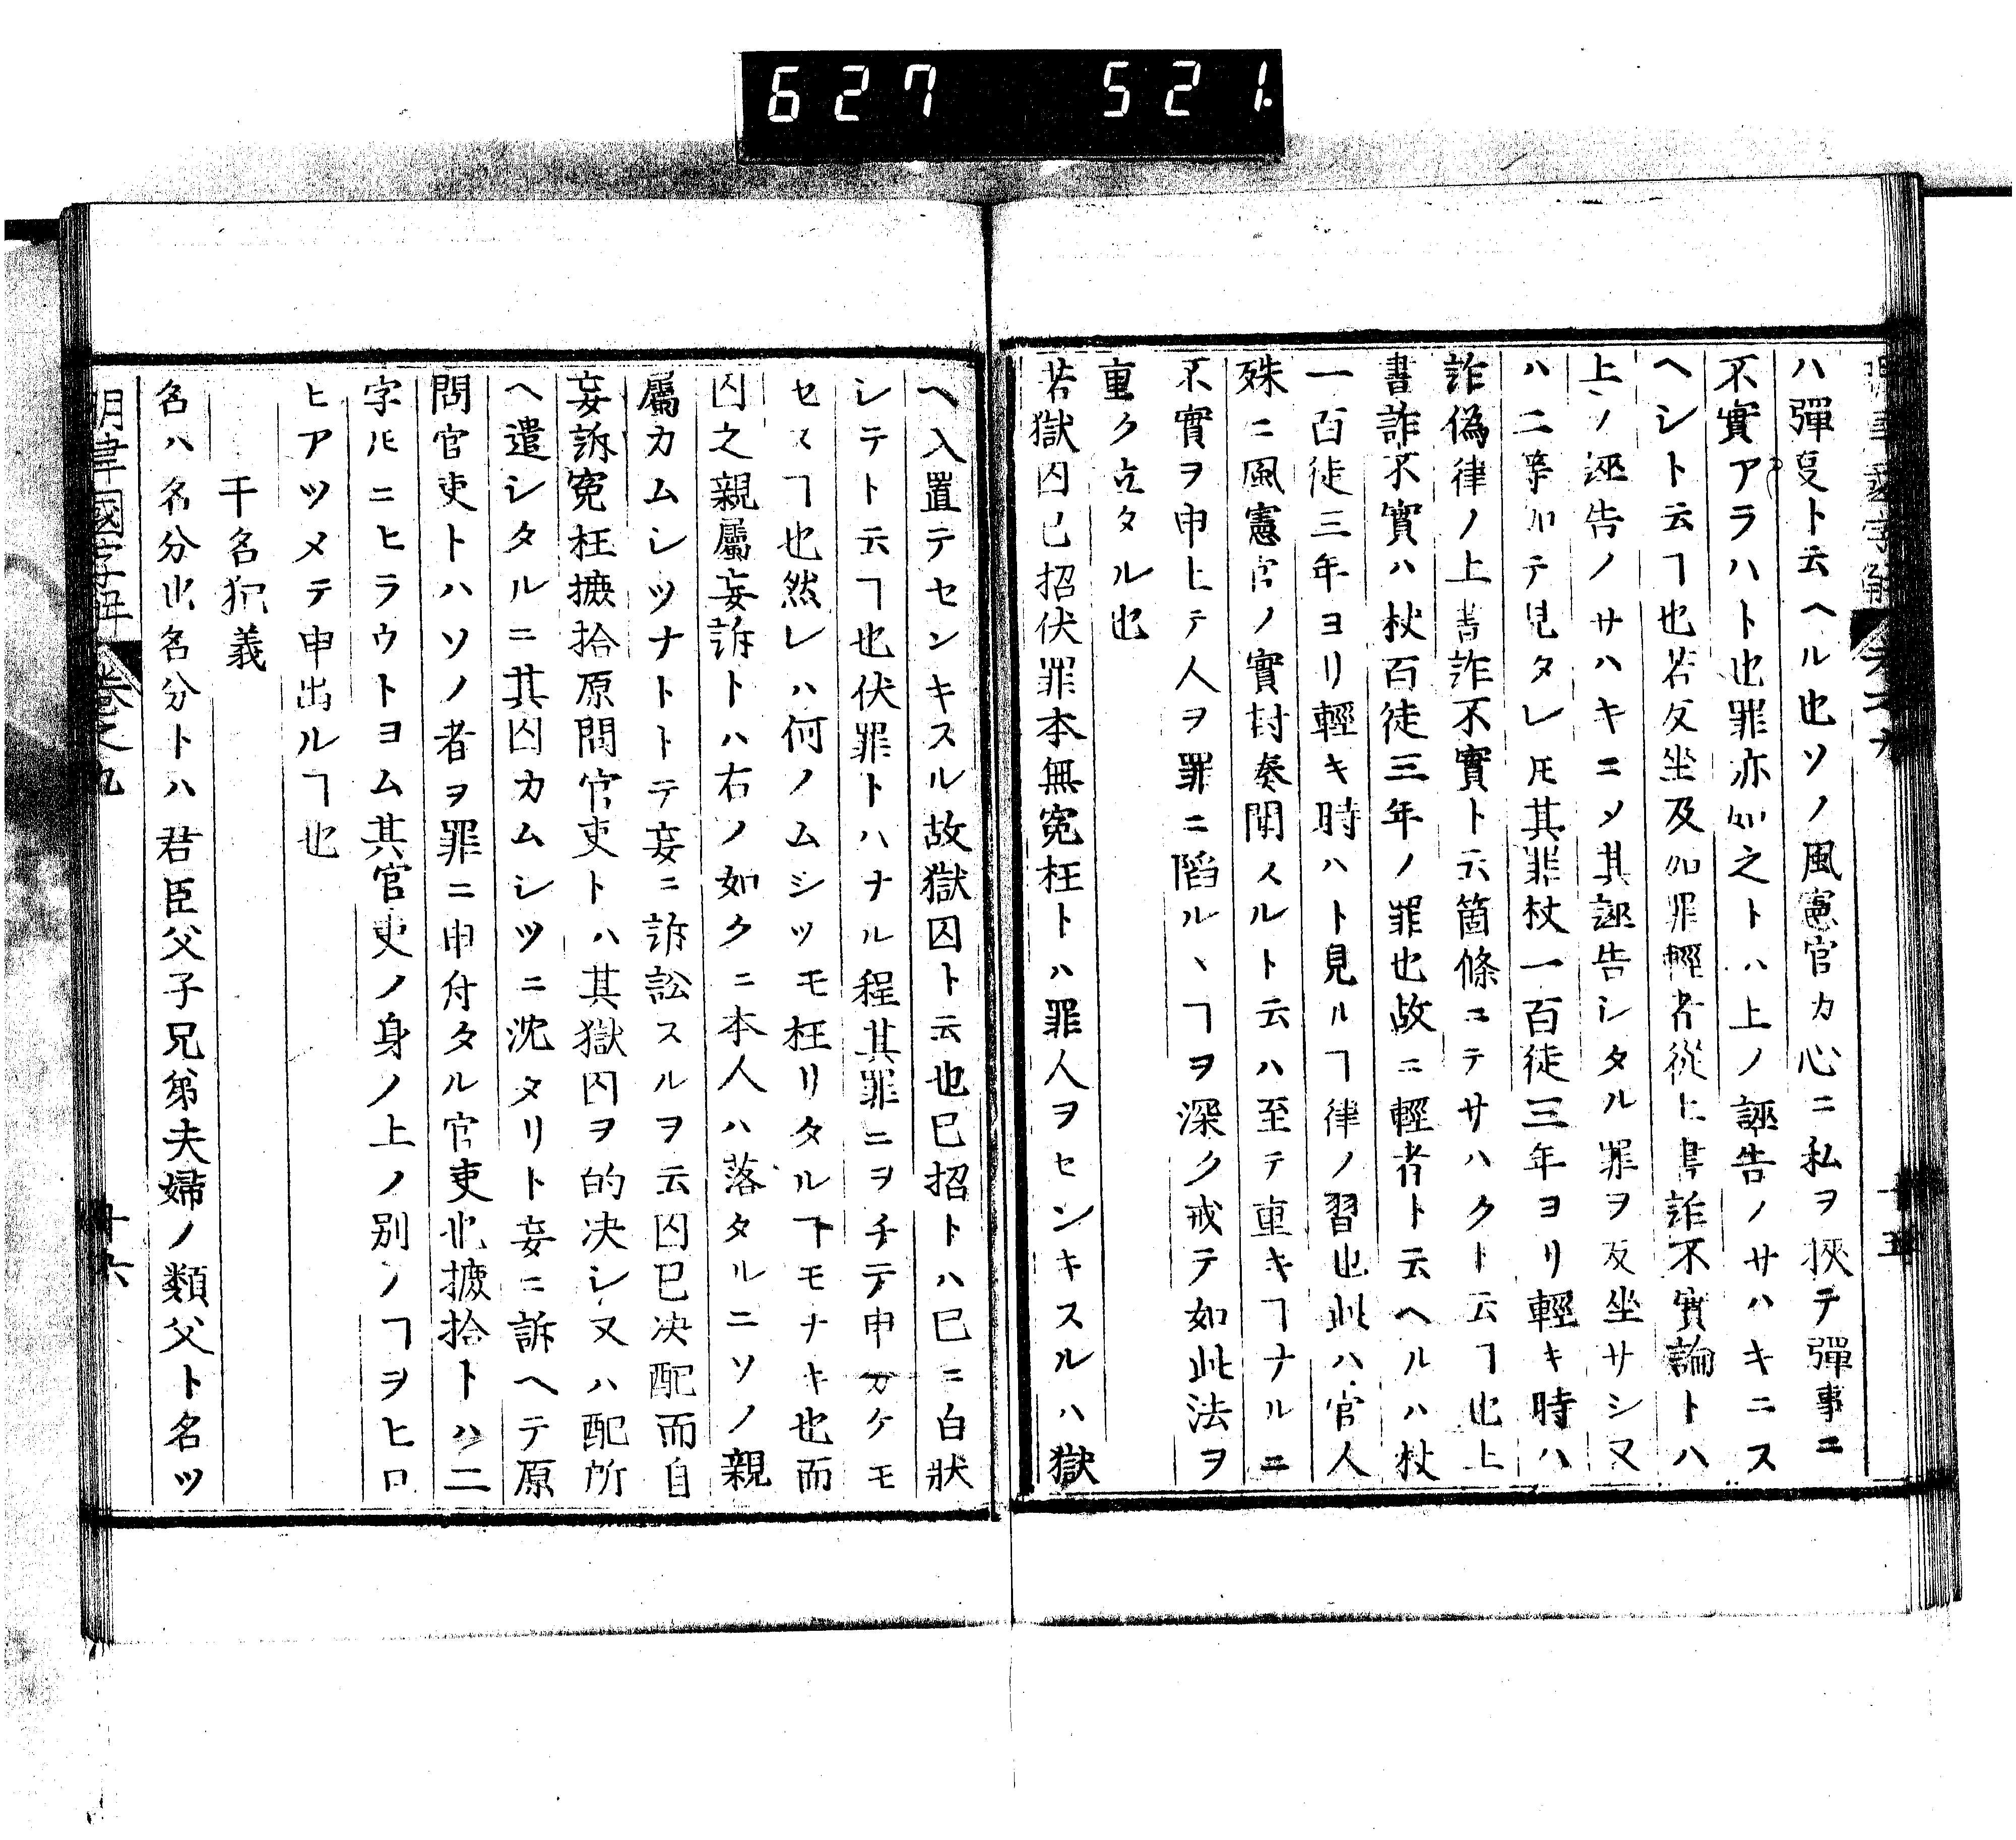 627 521.
ハ彈事ト云ヘル也ソノ風憲官カ心ニ私ヲ挾テ彈事ニ
不實アラハト也罪亦如之トハ上ノ誣告ノサハキニス
ヘシト云ヿ也若反坐及加罪輕者從上書詐不實論トハ
上ノ誣告ノサハキニソ其誣告シタル罪ヲ反坐サシ又
ハ二等加テ見タレ𪜈其罪杖一百徒三年ヨリ輕キ時ハ
詐僞律ノ上書詐不實ト云箇條ニテサハクト云ヿ也上
書詐不實ハ杖百徒三年ノ罪也故ニ輕者ト云ヘルハ杖
一百徒三年ヨリ輕キ時ハト見ルヿ律ノ習也此ハ官人
殊ニ風憲官ノ實封奏聞スルト云ハ至テ重キヿナルニ
不實ヲ申上テ人ヲ罪ニ䧟ルヽヿヲ深ク戒テ如此法ヲ
重ク立タル也
若獄囚已招伏罪本無寃枉トハ罪人ヲセンキスルハ獄
ヘ入置テセンキスル故獄囚ト云也已招トハ已ニ白狀
シテト云ヿ也伏罪トハナル程其罪ニヲチテ申分ケモ
セヌヿ也然レハ何ノムシツモ枉リタルヿモナキ也而
囚之親屬妄訴トハ右ノ如クニ本人ハ落タルニソノ親
屬カムシツナトトテ妄ニ訴訟スルヲ云囚已决配而自
妄訴寃枉摭拾原問官吏トハ其獄囚ヲ的决シ又ハ配所
ヘ遣シタルニ其囚カムシツニ沈タリト妄ニ訴ヘテ原
問官吏トハソノ者ヲ罪ニ申付タル官吏也摭拾トハ二
字𪜈ニヒラウトヨム其官吏ノ身ノ上ノ別ノヿヲヒロ
ヒアツメテ申出ルヿ也
干名犯義
名ハ名分也名分トハ君臣父子兄弟夫婦ノ類父ト名ツ
明律國字解 卷之九 十六